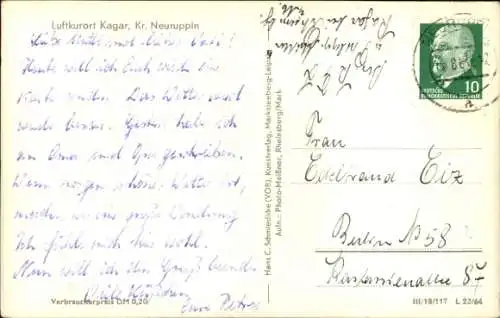 Luftkurort Kagar, Kr. Neuruppin
Liebe Mutter und lieber Vati!
Heute will ich Euch mal eine
Karte senden. Das Wetter wird
wieder besser. Gestern habe ich
an Oma und Opa geschrieben.
Wenn morgen schönes Wetter ist,
machen wir eine große Wanderung.
Ich fühle mich hier wohl.
Nun will ich den Gruß beenden
Viele
Eure Petra
Verbraucherpreis DM 0,20
Hans C. Schmiedicke (VOB), Kunstverlag, Markkleeberg-Leipzig
Aufn.: Photo-Meißner, Rheinsberg/Mark
DEUTSCHE
DEMOKRATISCHE REPUBLIK
10
Frau
Edeltraud Eiz
Berlin N 58
Kastanienallee 87
III/18/117 L 22/64